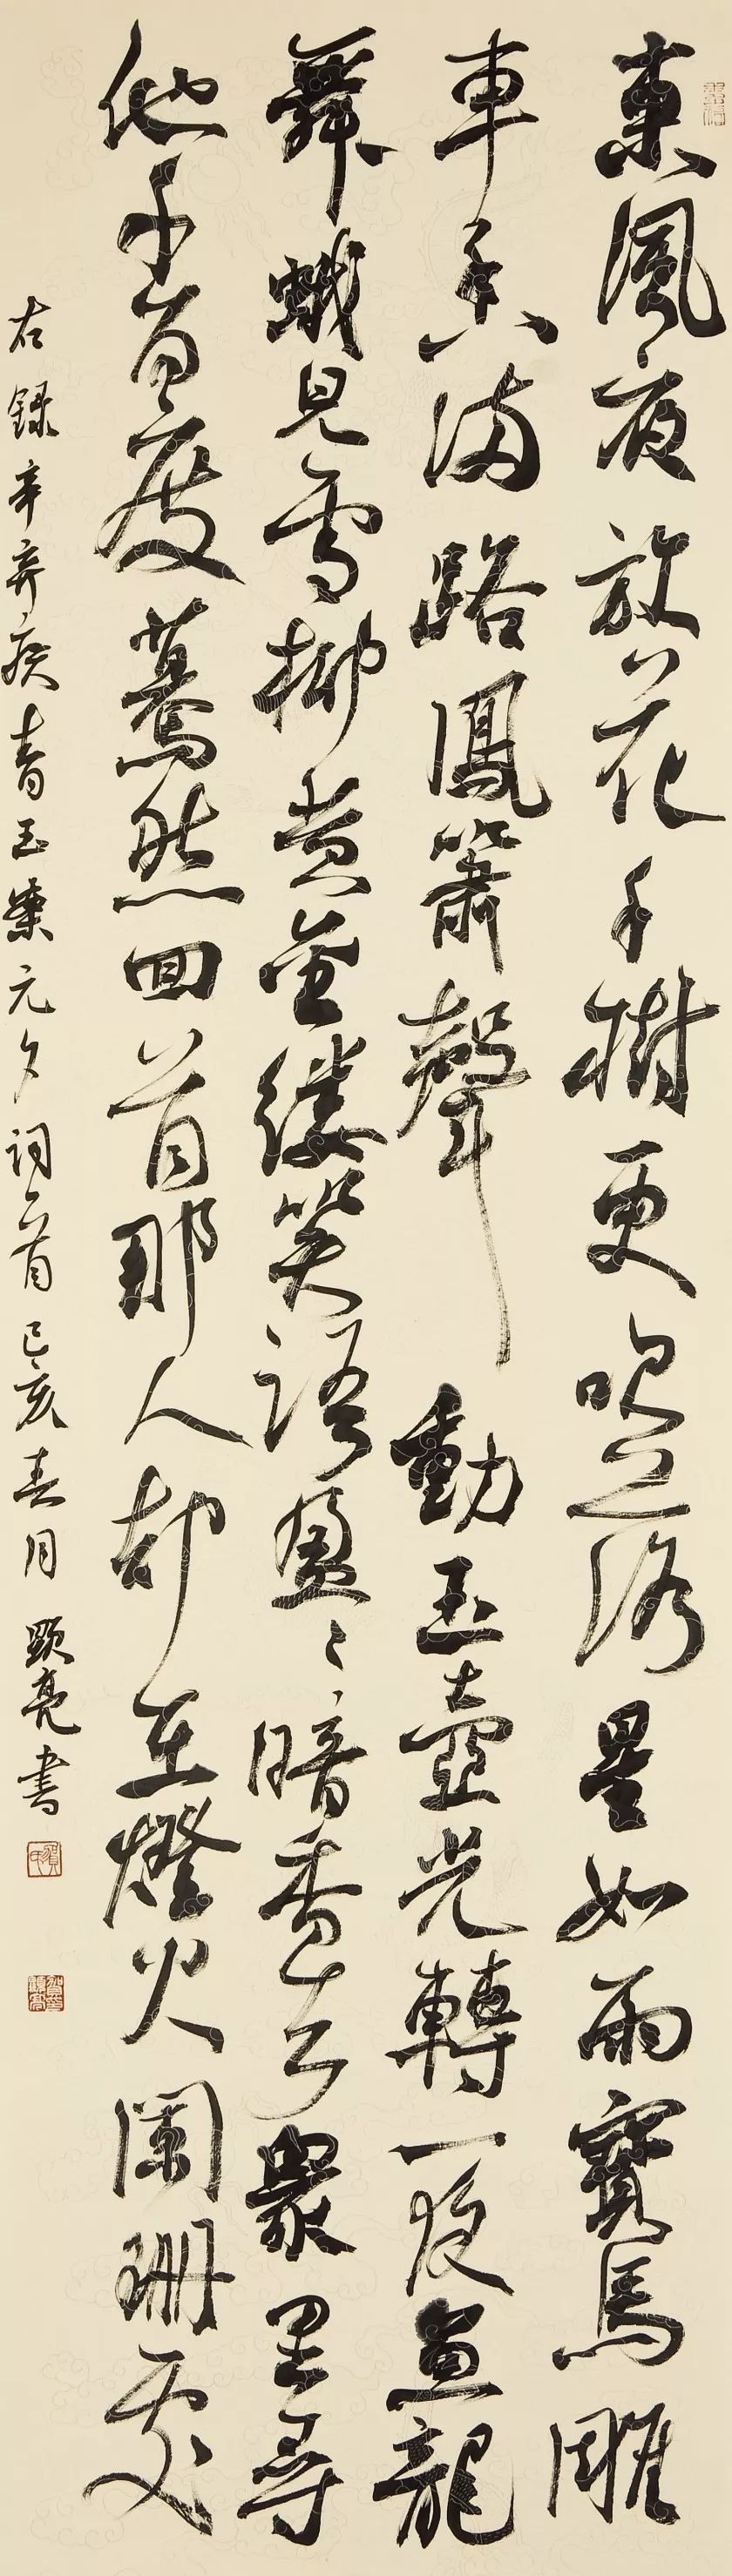 東風夜放花千樹更吹落星如雨寶馬雕
車香滿路鳳簫聲動玉壺光轉一夜魚龍
舞蛾見雪柳黄金缕笑語盈々暗香去眾里尋
他千百度驀然回首那人却在燈火闌珊處
右録辛弃疾青玉案元夕词一首己亥春月顯亮書